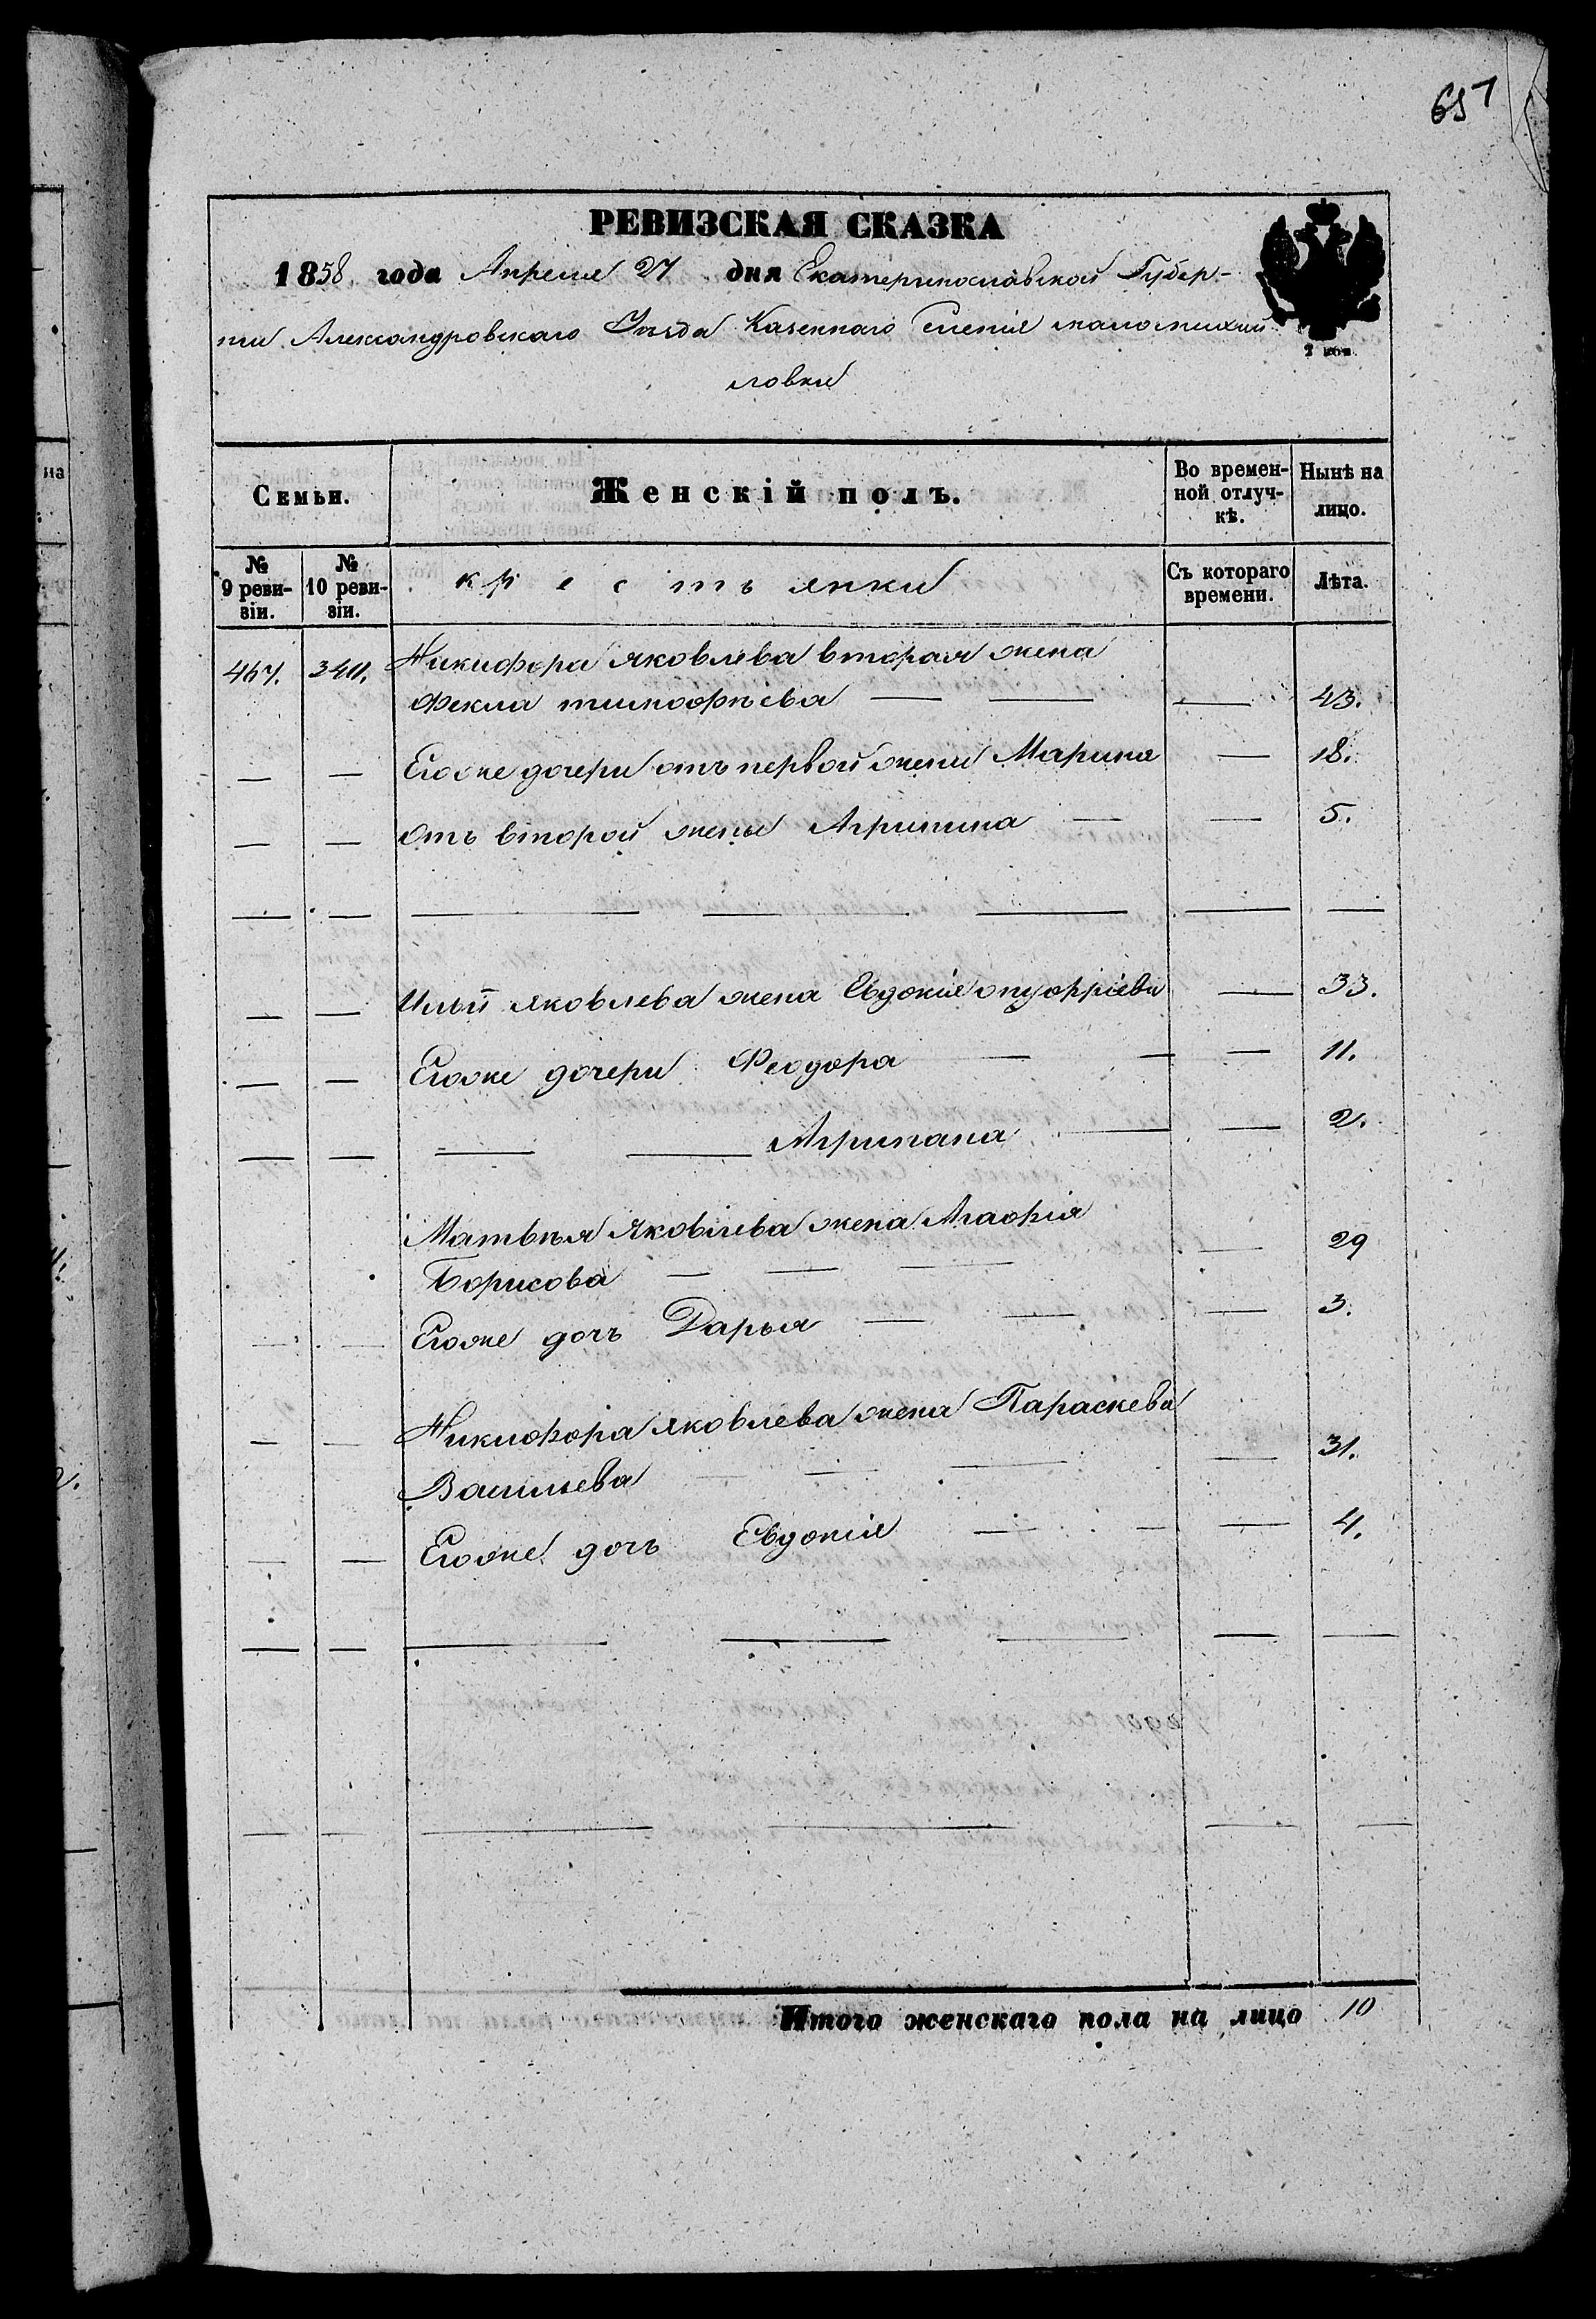 657
РЕВИЗСКАЯ СКАЗКА
1858 года Апреля 27 дня Екатеринославской Губер-
нии Александровскаго Уезда Казеннаго Селенія маломихай
ловки
2 коп.
Семьи.
Женскій полъ.
Во времен-
ной отлуч-
кѣ.
Нынѣ на
лицо.
№
9 реви-
зіи.
№
10 реви-
зіи.
крестьянки
Съ котораго
времени.
Лѣта.
467. 340. Никифора яковлева вторая жена
Фекла тимофѣева — — — 43.
— — Егоже дочери отъ первой жены Марина — 18.
— — отъ второй жены Агрипина — — 5.
— — Ильи яковлева жена Евдокія — 33.
— — Егоже дочери Феодора — — — 11.
— — — — Агрипана — — 2.
Матвѣя Яковлева жена Агафія
Борисова — — — — 29
— — Егоже дочь Дарья — — — 3.
— — Никифора яковлева жена Параскева
Васильева — — — — 31.
— — Егоже дочь Евдокія — — — 4.
Итого женскаго пола на лицо 10
на